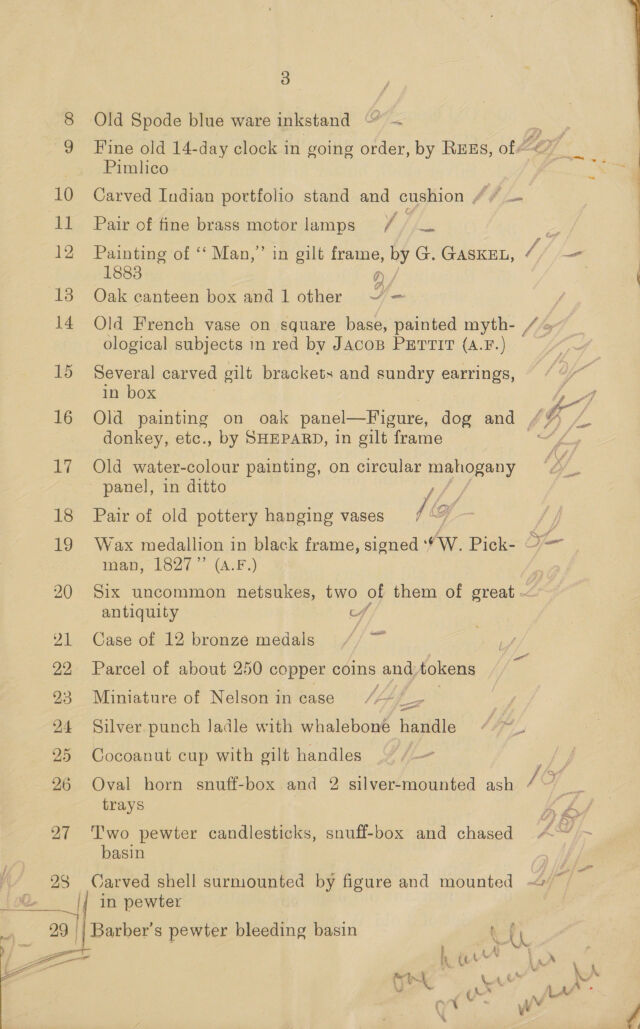 3
8 Old Spode blue ware inkstand 6/-
9 Fine old 14-day clock in going order, by REES, of 20/
Pimlico
10 Carved Indian portfolio stand and cushion 11/-
11 Pair of fine brass motor lamps
12 Painting of “ Man,” in gilt frame, by G. GASKEL,
1883
13 Oak canteen box and 1 other
14 Old French vase on square base, painted myth-
ological subjects in red by JACOB PETTIT (A.F.)
15 Several carved gilt brackets and sundry earrings,
in box
16 Old painting on oak panel—Figure, dog and 15/-
donkey, etc., by SHEPARD, in gilt frame
17 Old water-colour painting, on circular mahogany
panel, in ditto
18 Pair of old pottery hanging vases 16/-
19 Wax medallion in black frame, signed “W. Pick-
man, 1827” (A.F.)
20 Six uncommon netsukes, two of them of great
antiquity
21 Case of 12 bronze medals
22 Parcel of about 250 copper coins and tokens
23 Miniature of Nelson in case 14/-
24 Silver punch ladle with whalebone handle 14/-
25 Cocoanut cup with gilt handles 21/-
26 Oval horn snuff-box and 2 silver-mounted ash 16/
trays
27 Two pewter candlesticks, snuff-box and chased
basin
28 Carved shell surmounted by figure and mounted
in pewter
29 Barber's pewter bleeding basin
one handle
graduated
inside